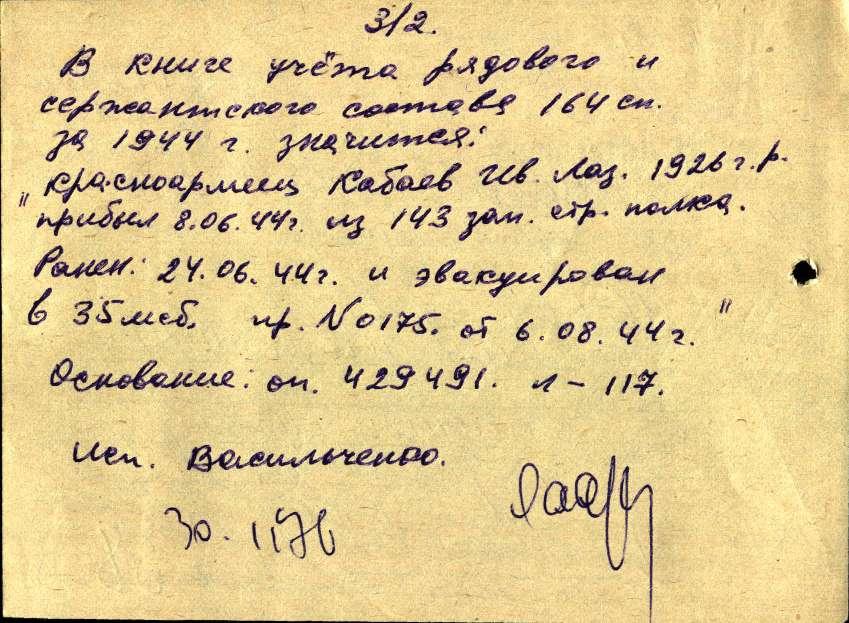 3/2.
В книге учёта рядового и
сержантского состава 164 сп.
за 1944 г. значится:
"красноармеец Кабаев Ив. Лаз. 1926 г.р.
прибыл 8.06.44г. из 143 зап. стр. полка.
Ранен: 24.06.44г. и эвакуирован
в 35 мсб. пр. N 0175. от 6.08.44 г."
Основание: оп. 429491. л – 117.
Исп. Васильченко.
30.